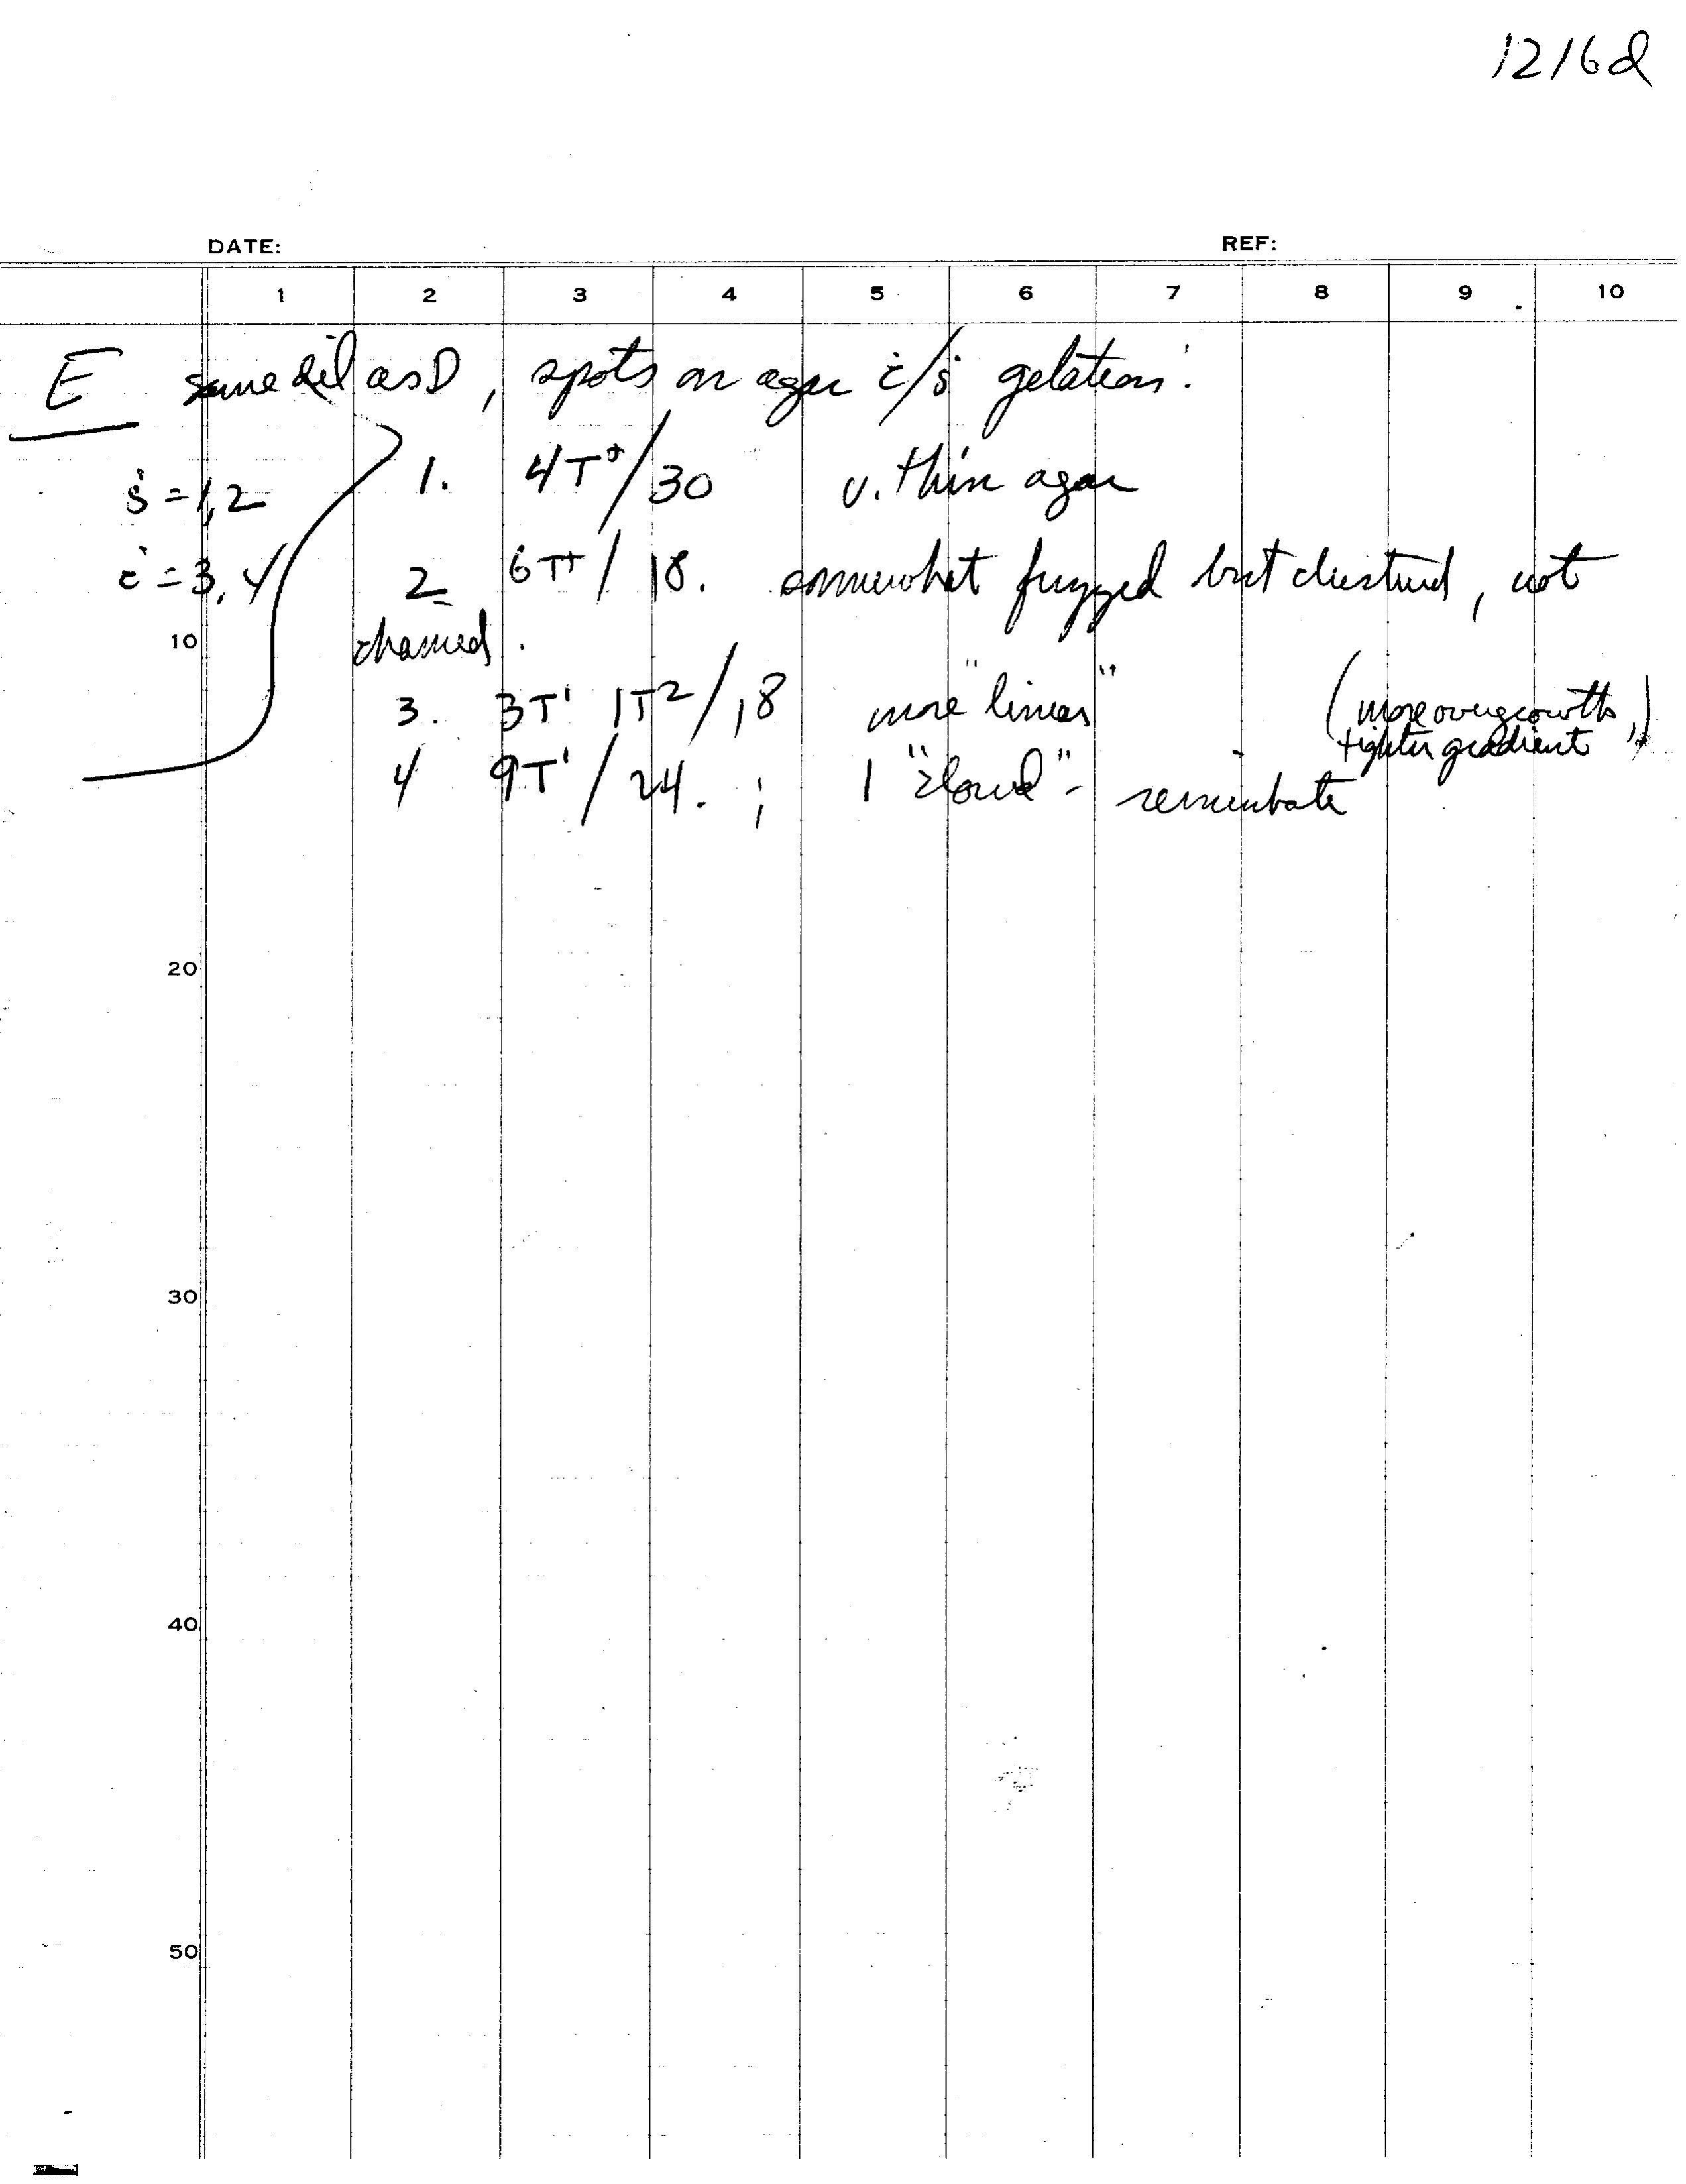 1216d
DATE: REF:
1 2 3 4 5 6 7 8 9 10
E same dil as D, spots on agar c̄/s̄ gelatin:
s̄ = 1,2
1. 4T⁺/30 v. thin agar
c̄ = 3,4
2 6T⁺/18. somewhat fuzzed but clustered, not
10
chained.
3. 3T¹ 1T²/18 more "linear" (more overgrowth,
tighter gradient)
4 9T¹/24. ; 1 "cloud" - reincubate
20
30
40
50